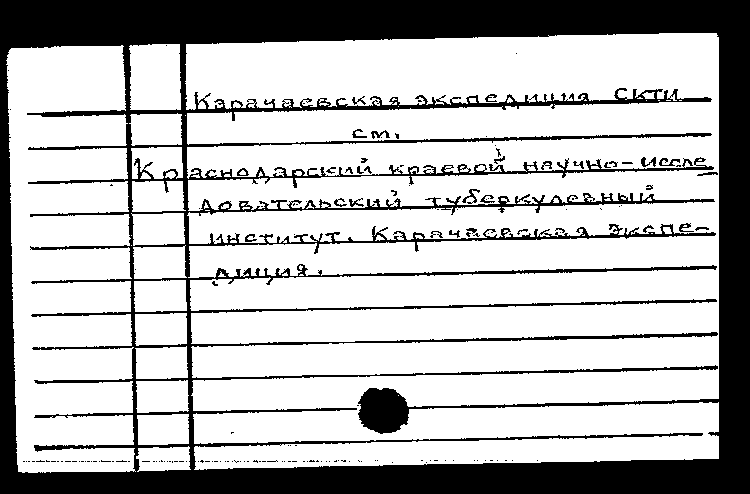 Карачаевская экспедиция СКТИ
см.
Краснодарский краевой научно-иссле
довательский туберкулезный
институт. Карачаевская экспе-
диция.